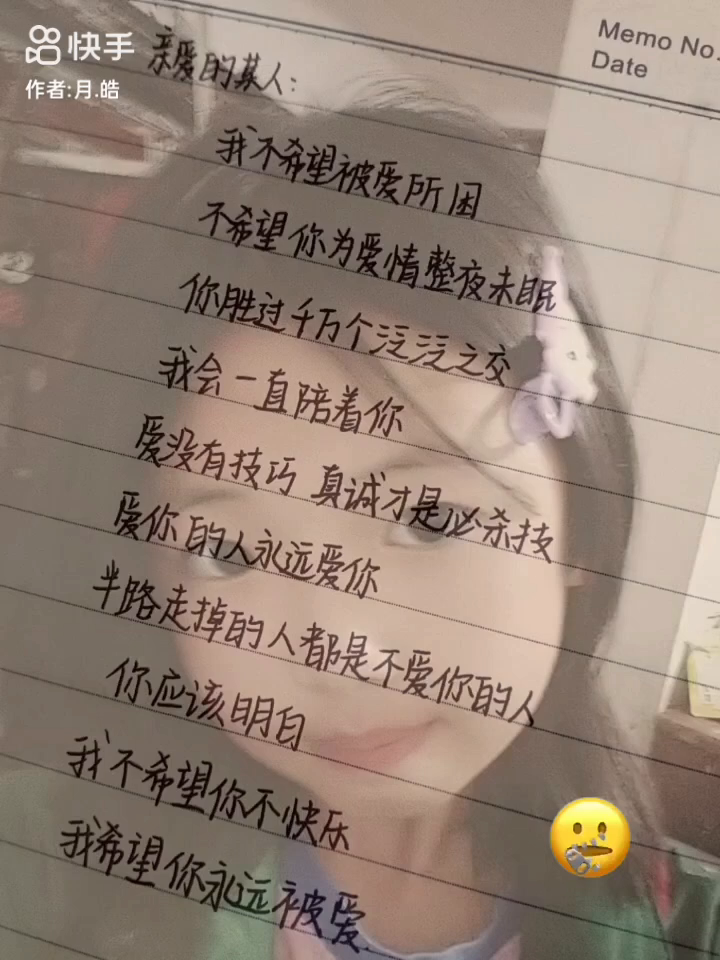 快手
作者:月.皓
Memo No.
Date
亲爱的某人:
我不希望被爱所困
不希望你为爱情整夜未眠
你胜过千万个泛泛之交
我会一直陪着你
爱没有技巧 真诚才是必杀技
爱你的人永远爱你
半路走掉的人都是不爱你的人
你应该明白
我不希望你不快乐
我希望你永远被爱.